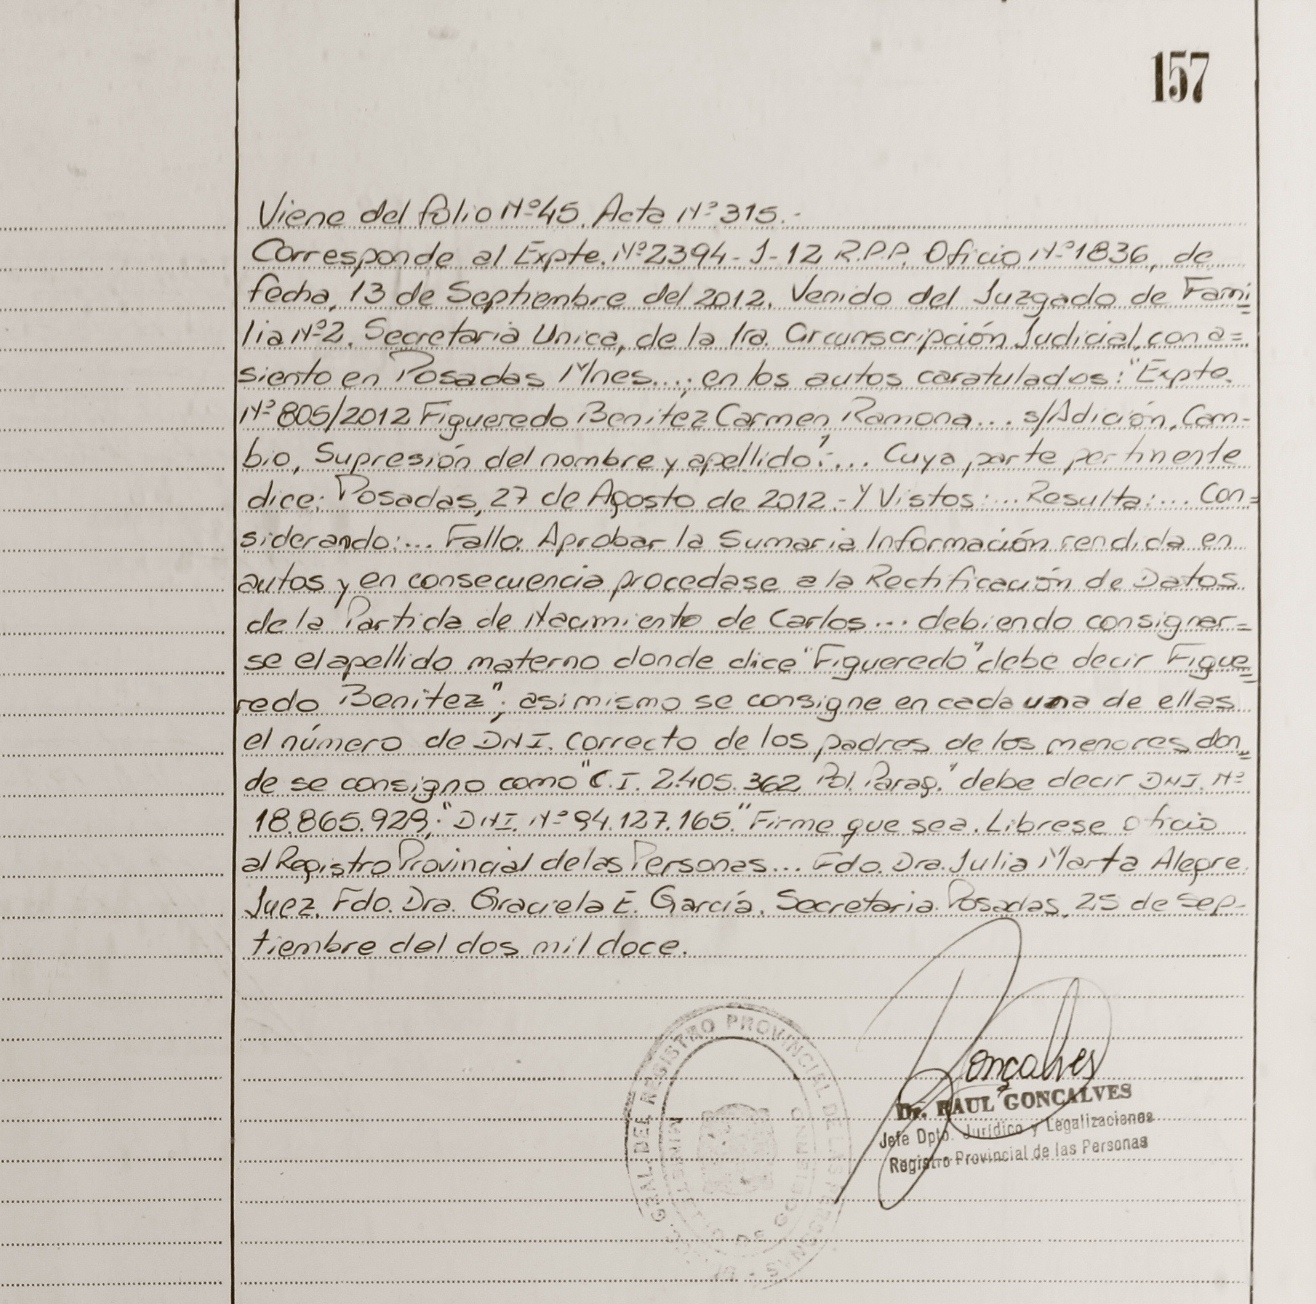 157
Viene del folio Nº45. Acta Nº315.-
Corresponde al Expte. Nº2394-J-12 R.P.P. Oficio Nº1836, de
fecha, 13 de Septiembre del 2012. Venido del Juzgado de Fami=
lia Nº2. Secretaría Unica, de la 1ra. Circunscripción Judicial, con a=
siento en Posadas Mnes...; en los autos caratulados: "Expte.
Nº 805/2012 Figueredo Benitez Carmen Ramona... s/Adición, Cam-
bio, Supresión del nombre y apellido":... Cuya parte pertinente
dice: Posadas, 27 de Agosto de 2012.- Y Vistos:... Resulta:... Con=
siderando:... Fallo: Aprobar la Sumaria Información rendida en
autos y en consecuencia procedase a la Rectificación de Datos
de la Partida de Nacimiento de Carlos... debiendo consignar=
se el apellido materno donde dice "Figueredo" debe decir Figue=
redo Benitez"; asimismo se consigne en cada una de ellas
el número de DNI. correcto de los padres de los menores, don=
de se consigno como "C.I. 2.405.362 Pol. Parag." debe decir DNI. Nº
18.865.929; "DNI. Nº 94.127.165." Firme que sea. Librese oficio
al Registro Provincial de las Personas... Fdo. Dra. Julia Marta Alegre.
Juez. Fdo. Dra. Graciela E. García. Secretaria. Posadas, 25 de Sep-
tiembre del dos mil doce.
GRAL. DEL REGISTRO PROVINCIAL DE LAS PERSONAS
MINISTERIO DE GOBIERNO
Gonçalves
Dr. RAUL GONCALVES
Jefe Dpto. Jurídico y Legalizaciones
Registro Provincial de las Personas